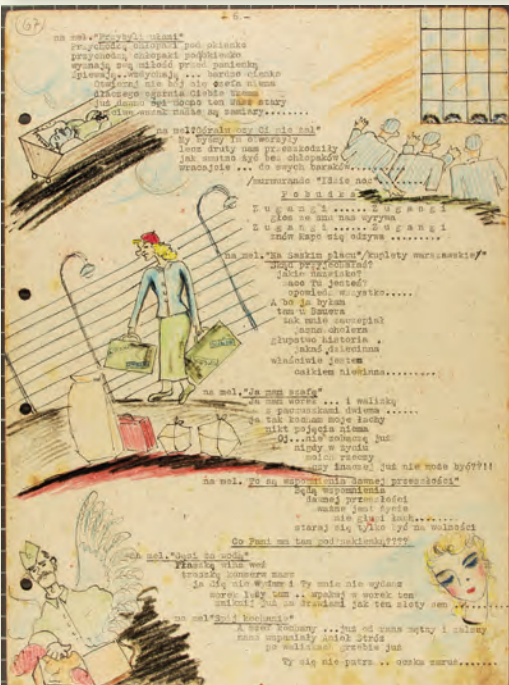 67
- 6 -
na mel. "Przybyli ułani"
Przychodzą chłopaki pod okienko
przychodzą chłopaki podokienko
wyznają swą miłość przed panienką
śpiewają..wzdychają ... bardzo cienko
Otwieraj nie bój się szefa niema
dlaczego ogarnia Ciebie trema
już dawno śpi mocno ten Wasz stary
zamiary........
na mel."Góralu czy Ci nie żal"
My byśmy Tu otworzyły
lecz druty nam przeszkodziły
jak smutno żyć bez chłopaków
wracajcie ... do swych baraków
/murmurando "Idzie noc"
Pobudka
Zugangi......Zugangi
głos ze snu nas wyrywa
Zugangi......Zugangi
znów Kapo się odzywa .........
na mel."Na Saskim placu"/kuplety warszawskie/"
Skąd przyjechałaś?
jakie nazwisko?
zaco Tu jesteś?
opowiedz wszystko.....
A bo ja byłam
tam u Bauera
tak mnie zaczepiał
jasna cholera
głupstwo historia ,
jakaś dziecinna
właściwie jestem
całkiem niewinna.........
na mel."Ja mam szafę"
Ja mam worek ... i walizkę
z paczuszkami dwiema ......
ja tak kocham moje łachy
nikt pojęcia niema
Oj...nie zobaczę już
nigdy w życiu
moich rzeczy
czy inaczej już nie może być??!!
na mel. "To są wspomnienia dawnej przeszłości"
Będą wspomnienia
dawnej przeszłości
ważne jest życie
nie głupi łach......
staraj się tylko być na wolności
Co Pani ma tam pod sukienką????
na mel."Gęsi za wodą"
Flaszkę wina weź
troszkę konserw masz
ja Cię nie wydam i Ty mnie nie wydasz
worek leży tam .. wpakuj w worek ten
zniknij Już za drzwiami jak ten złoty sen
na mel"Śnij kochanie"
A szef kochany ...już od rana mętny i zalany
nasz wspaniały Anioł Stróż
po walizkach grzebie już
Ty się nie patrz .. oczka zmruż.......